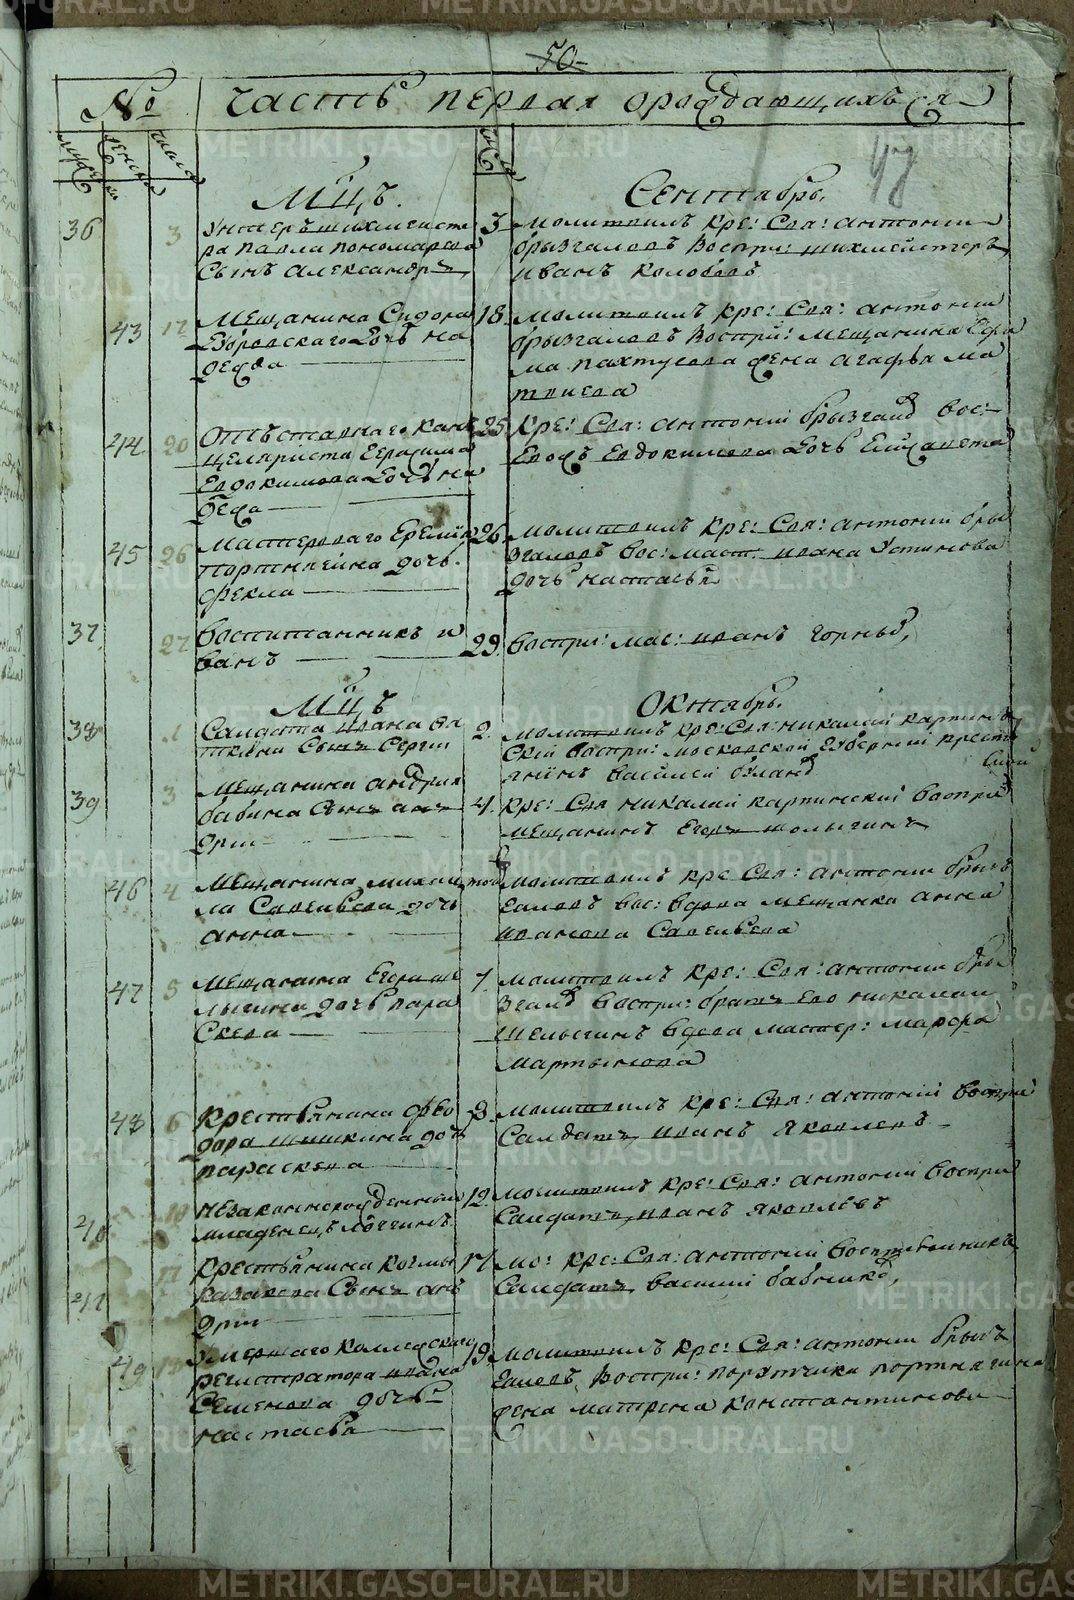 50
№ Часть первая о рождающихся
мужеска женска числа числа
Мцъ. Сентябрь.
36 3 Унтеръ шихмейсте
ра Павла Пономарева
Сынъ Александръ
3 молитвилъ кре: Свя: антоний
брызгаловъ воспри: шихмейстеръ
иванъ Колобовъ
43 17 Мещанина Сидора
Дочь на
дежда
18 молитвилъ кре: Свя: антоний
брызгаловъ воспри: мещанина Ефи
ма пахтусова жена агафья ма
твиева
44 20 Отъставнаго кан
целяриста Герасима
Евдокимова Дочь на
дежда
25 Кре: Свя: антоний брызгалов вос:
Евдокимова дочь Елизавета
45 26 Мастероваго Еремея
портнягина дочь
фекла
26 молитвилъ кре: Свя: антоний бры
згаловъ вос: маст: ивана Устинова
дочь настасья
37 27 Воспитанникъ и
ванъ
29 воспри: мас: иванъ горный,
Мцъ Октябрь.
38 1 Салдата ивана вя
ткина Сынъ Сергий
2 молитвилъ кре: Свя: николай карпин
ский воспри: московской губернии крест
янинъ василей буланов
39 3 Мещанина андрия
бабина Сынъ ан
дрий
4 кре: Свя николай карпинский воспри
мещанинъ Егоръ шолыгинъ
46 4 Мещанина михай
ла Савельева дочь
анна
той молитвилъ кре Свя: антоний брыз
галовъ вос: вдова мещанка анна
иванова Савельева
47 5 Мещанина Егора ше
лыгина дочь пара
скева
7 молитвилъ кре: Свя: антоний бры
згалов воспри: братъ Его николай
Шелыгинъ вдова мастер: марфа
мартынова
48 6 Крестьянина фео
дора шишкина дочь
параскева
8 молитвилъ кре: Свя: антоний воспри
Салдатъ иванъ яковлевъ
40 10 Незаконнорожденный
младенецъ логгинъ
12 молитвилъ кре: Свя: антоний воспри
Салдатъ иванъ яковлевъ
41 17 Крестьянина козмы
казакова Сынъ ан
дрий
17 мо: кре: Свя: антоний
Салдатъ василий бабников,
49 умершаго коллежскаго
регистратора ивана
Семенова дочь
настасья
19 молитвилъ кре: Свя: антоний брыз
галовъ воспри: портнягина
жена матрена константинова
METRIKI.GASO-URAL.RU